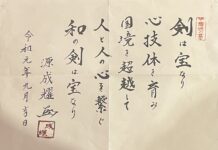 剣は宝なり
心技体を育み
国境を超越して
人と人の心を繋ぐ
和の剣は宝なり
令和元年九月吉日
源成耀